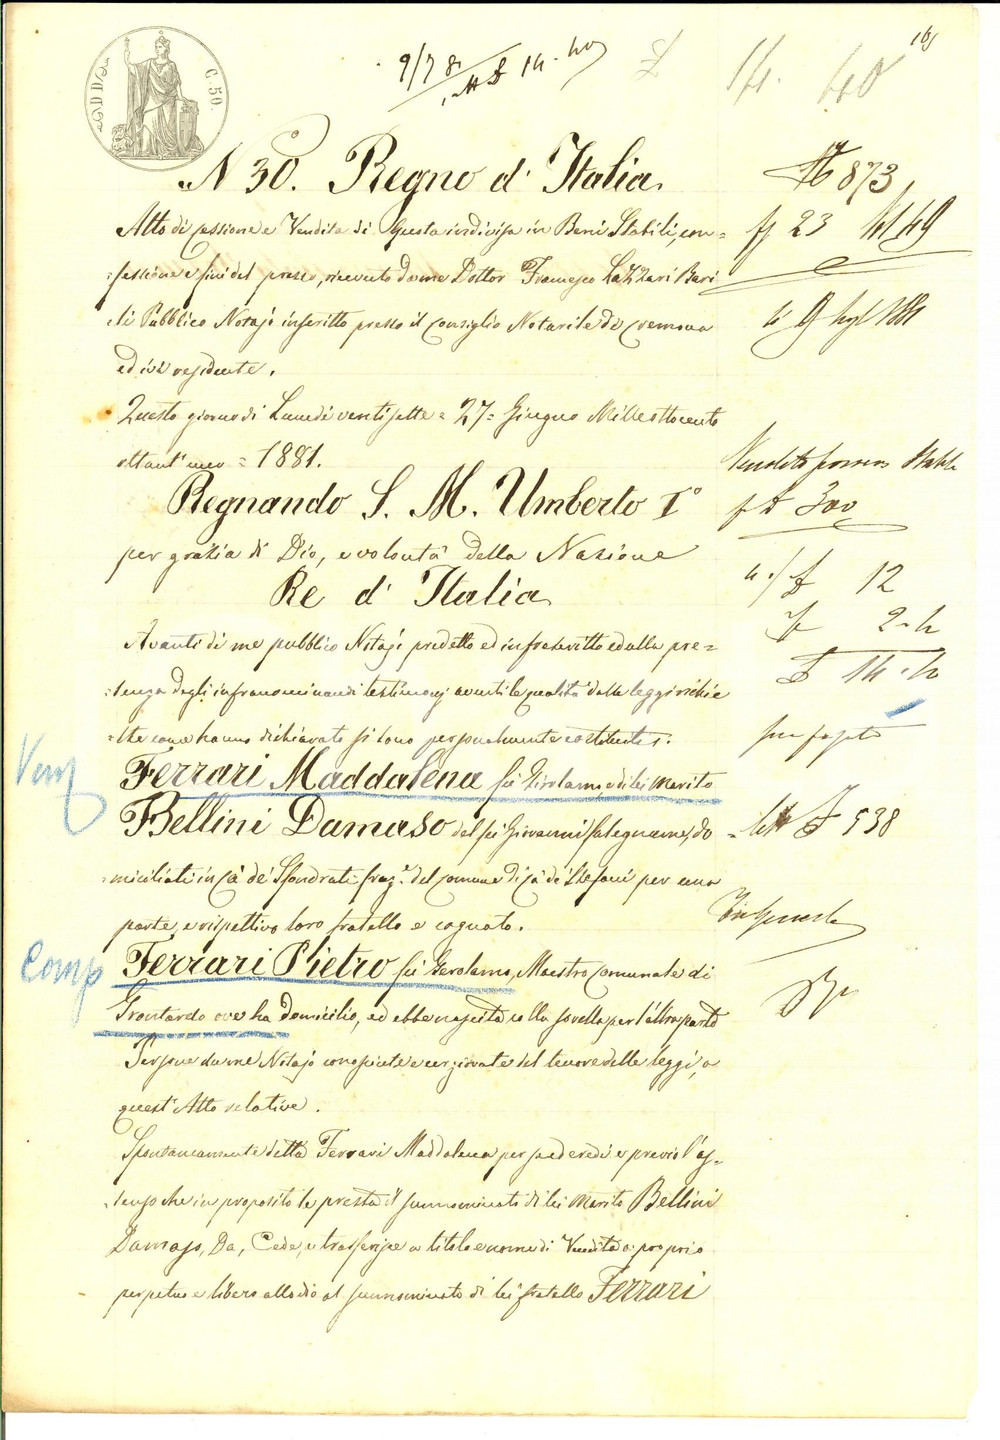 C. 50.
9/7 81
£ 14. 40
14. 40
N 30. Regno d'Italia.
Atto di cessione e Vendita di Questa indivisa in Beni Stabili, con=
=fessione e fini del prezzo, ricevuto da me Dottor Francesco Lazzari Bari
=li Pubblico Notajo inscritto presso il Consiglio Notarile di Cremona
ed ivi residente.
Questo giorno di Lunedì ventisette = 27 = Giugno Mille ottocento
ottant'uno = 1881.
Regnando S. M. Umberto I°
per grazia di Dio, e volontà della Nazione
Re d'Italia
Avanti di me pubblico Notajo predetto ed infrascritto ed alla pre=
=senza degli infranominandi testimonj aventi le qualità dalle leggi richie
=ste come hanno dichiarato si sono personalmente costituiti:
Ferrari Maddalena fu Girolamo, e di lei Marito
Bellini Damaso del fu Giovanni falegname, do
=miciliati in Cà de' Sfondrati fraz.e del comune di Cà de' Stefani per una
parte, e rispettivo loro fratello e cognato.
Ferrari Pietro fu Gerolamo, Maestro Comunale di
Grontardo ove ha domicilio, ed ebbe nascita colla sorella per l'altra parte
Persone da me Notajo conosciute e cerziorate del tenore delle leggi, a
quest'Atto relative.
Spontaneamente detta Ferrari Maddalena per se ed eredi e previo l'as=
=senso che in proposito le presta il sunnominato di lei Marito Bellini
Damaso, Dà, Cede, e trasferisce a titolo e nome di Vendita a proprio
perpetuo e libero allodio al sunnominato di lei fratello Ferrari
Vend
Comp
N 873
23
li 9 1881
Vendita Stabili
300
12
2.40
£ 14.40
£ 538